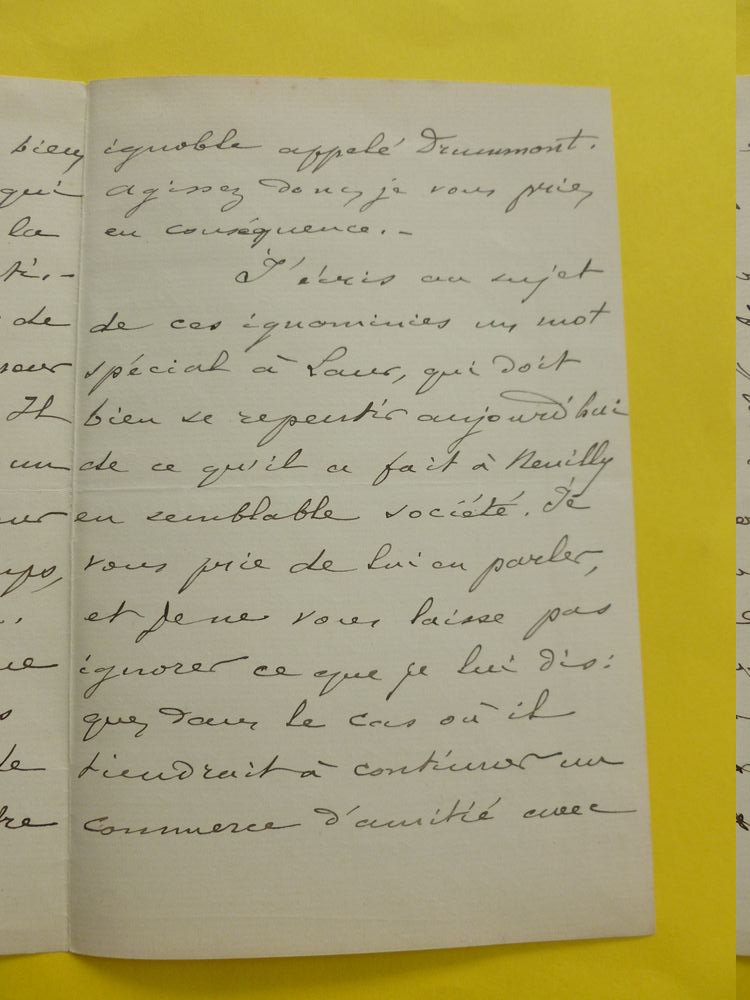 bien ignoble appelé Drummont.
qui agissez donc, je vous prie,
la en conséquence. –
ti. – J'écris au sujet
de de ces ignominies un mot
spécial à Laur, qui doit
Il bien se repentir aujourd'hui
un de ce qu'il a fait à Neuilly
en semblable société. Je
vous prie de lui en parler,
et je ne vous laisse pas
ignorer ce que je lui dis :
que, dans le cas où il
tiendrait à continuer un
commerce d'amitié avec